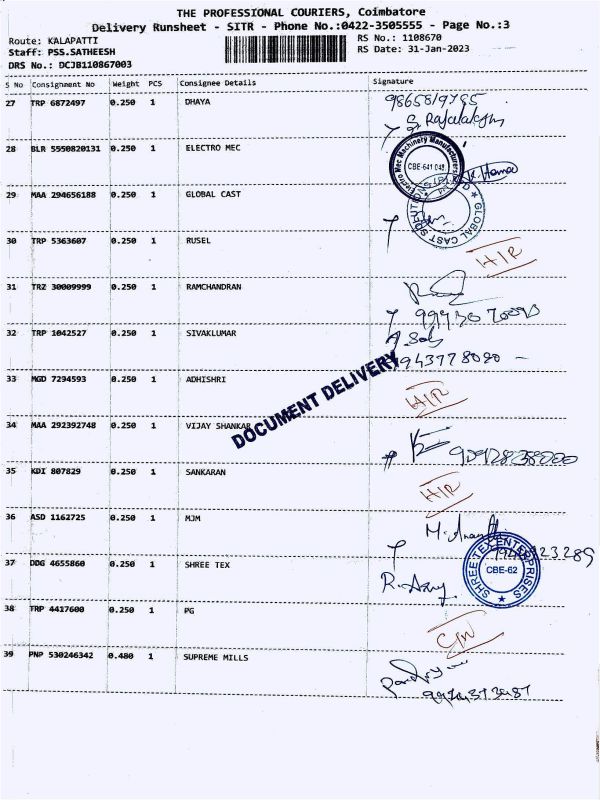 THE PROFESSIONAL COURIERS, Coimbatore
Delivery Runsheet - SITR - Phone No.:0422-3505555 - Page No.:3
Route: KALAPATTI RS No.: 1108670
Staff: PSS.SATHEESH RS Date: 31-Jan-2023
DRS No.: DCJB110867003
S No Consignment No Weight PCS Consignee Details Signature
27 TRP 6872497 0.250 1 DHAYA
S. Rajalakshmi
28 BLR 5550820131 0.250 1 ELECTRO MEC
Electro Mec Machinery Manufacturers
CBE-641 048
29 MAA 294656188 0.250 1 GLOBAL CAST
GLOBAL CAST
30 TRP 5363607 0.250 1 RUSEL H/R
31 TRZ 30009999 0.250 1 RAMCHANDRAN
32 TRP 1042527 0.250 1 SIVAKLUMAR
33 MGD 7294593 0.250 1 ADHISHRI H/R
DOCUMENT DELIVERY
34 MAA 292392748 0.250 1 VIJAY SHANKAR
35 KDI 807829 0.250 1 SANKARAN H/R
36 ASD 1162725 0.250 1 MJM
37 DDG 4655860 0.250 1 SHREE TEX
SHREE TEX ENTERPRISES
CBE-62
38 TRP 4417600 0.250 1 PG
39 PNP 530246342 0.480 1 SUPREME MILLS